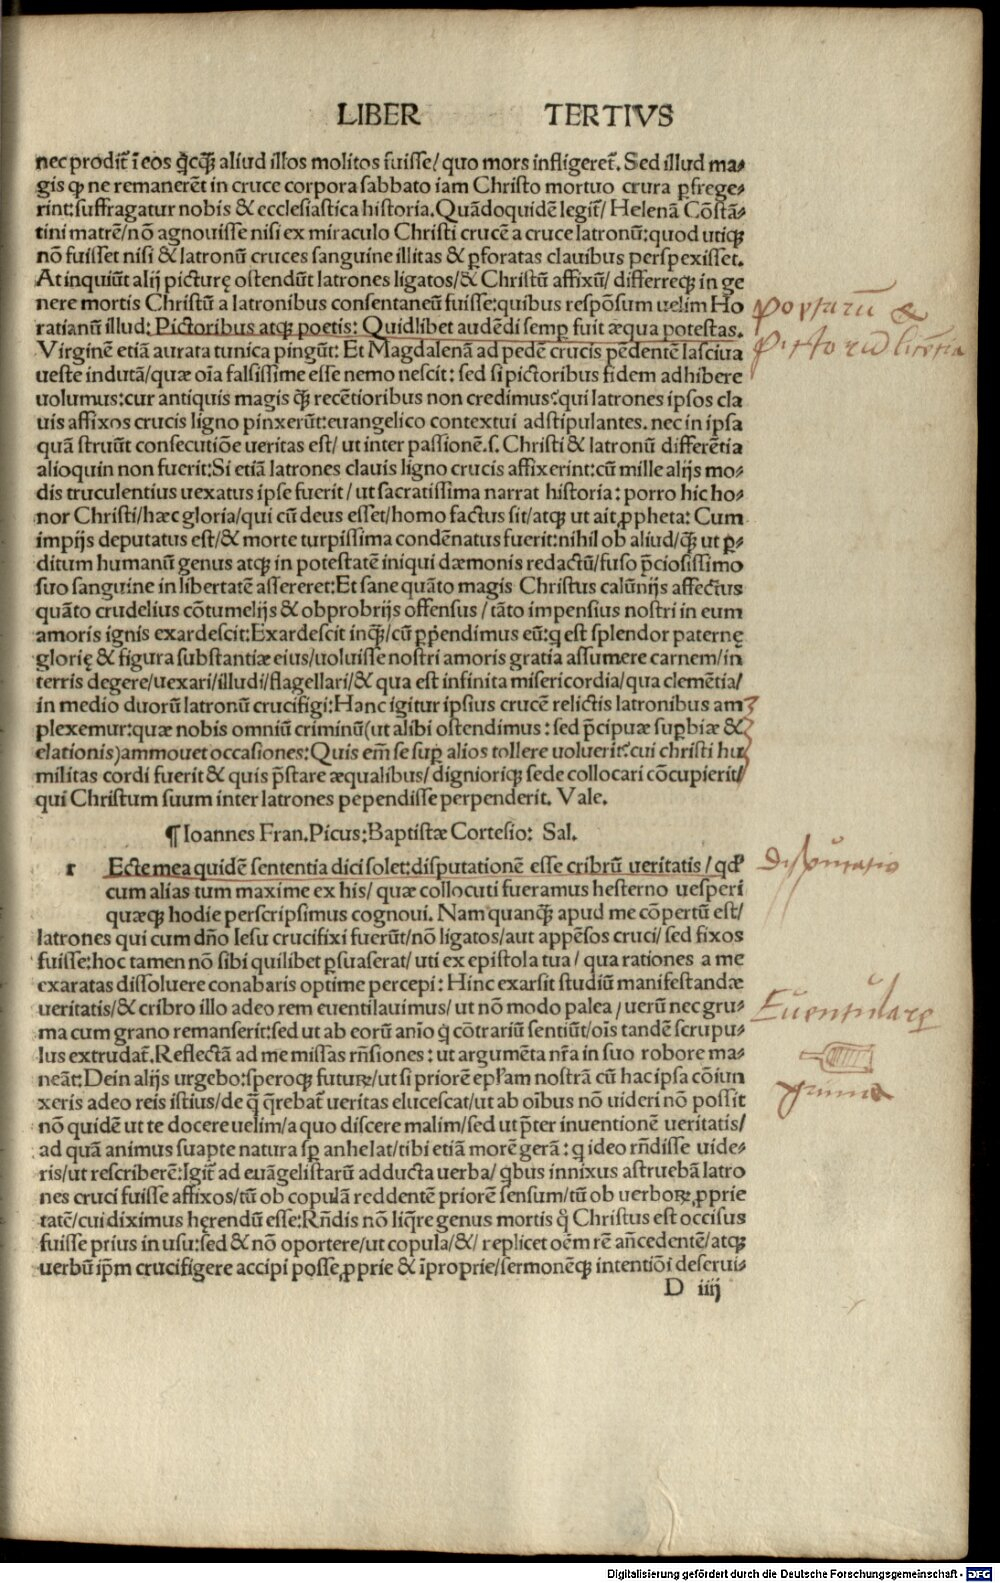 LIBER TERTIVS
nec prodit̃ ĩ eos q̃cq̃ȝ aliud illos molitos fuisse/ quo mors infligeret̃. Sed illud ma-
gis ꝙ ne remanerẽt in cruce corpora sabbato iam Christo mortuo crura p̱frege-
rint: suffragatur nobis & ecclesiastica historia. Quãdoquidẽ legit̃/ Helenã Cõstã-
tini matrẽ/ nõ agnouisse nisi ex miraculo Christi crucẽ a cruce latronũ: quod utiqȝ
nõ fuisset nisi & latronũ cruces sanguine illitas & p̱foratas clauibus perspexisset.
At inquiũt alij picturę ostendũt latrones ligatos/ & Christũ affixũ/ differreqȝ in ge
nere mortis Christũ a latronibus consentaneũ fuisse: quibus respõsum uelim Ho
ratianũ illud: Pictoribus atqȝ poetis: Quidlibet audẽdi semp̱ fuit æqua potestas.
Virginẽ etiã aurata tunica pingũt: Et Magdalenã ad pedẽ crucis pẽdentẽ lasciua
ueste indutã/ quæ oĩa falsissime esse nemo nescit: sed si pictoribus fidem adhibere
uolumus: cur antiquis magis q̃ȝ recẽtioribus non credimus? qui latrones ipsos cla
uis affixos crucis ligno pinxerũt: euangelico contextui adstipulantes. nec in ipsa
quã struũt consecutiõe ueritas est/ ut inter passionẽ .s. Christi & latronũ differẽtia
alioquin non fuerit: Si etiã latrones clauis ligno crucis affixerint: cũ mille alijs mo-
dis truculentius uexatus ipse fuerit/ ut sacratissima narrat historia: porro hic ho-
nor Christi/ hæc gloria/ qui cũ deus esset/ homo factus sit/ atqȝ ut ait ꝓpheta: Cum
impijs deputatus est/ & morte turpissima condẽnatus fuerit: nihil ob aliud/ q̃ȝ ut p̱-
ditum humanũ genus atqȝ in potestatẽ iniqui dæmonis redactũ/ fuso p̃ciosissimo
suo sanguine in libertatẽ assereret: Et sane quãto magis Christus calũnijs affectus
quãto crudelius cõtumelijs & obprobrijs offensus/ tãto impensius nostri in eum
amoris ignis exardescit: Exardescit inq̃ȝ/ cũ p̱p̱endimus eũ: q est splendor paternę
glorię & figura substantiæ eius/ uoluisse nostri amoris gratia assumere carnem/ in
terris degere/ uexari/ illudi/ flagellari/ & qua est infinita misericordia/ qua clemẽtia/
in medio duorũ latronũ crucifigi: Hanc igitur ipsius crucẽ relictis latronibus am
plexemur: quæ nobis omniũ criminũ (ut alibi ostendimus: sed p̃cipuæ sup̱biæ &
elationis) ammouet occasiones: Quis em̃ se sup̱ alios tollere uoluerit? cui christi hu
militas cordi fuerit & quis p̃stare æqualibus/ dignioriqȝ sede collocari cõcupierit/
qui Christum suum inter latrones pependisse perpenderit. Vale.
¶ Ioannes Fran. Picus: Baptistæ Cortesio: Sal.
r Ecte mea quidẽ sententia dici solet: disputationẽ esse cribrũ veritatis/ qđ
cum alias tum maxime ex his/ quæ collocuti fueramus hesterno uesperi
quæqȝ hodie perscripsimus cognoui. Nam quanq̃ȝ apud me cõpertũ est/
latrones qui cum dño Iesu crucifixi fuerũt/ nõ ligatos/ aut appẽsos cruci/ sed fixos
fuisse: hoc tamen nõ sibi quilibet p̱suaserat/ uti ex epistola tua/ qua rationes a me
exaratas dissoluere conabaris optime percepi: Hinc exarsit studiũ manifestandæ
ueritatis/ & cribro illo adeo rem euentilauimus/ ut nõ modo palea/ uerũ nec gru-
ma cum grano remanserit: sed ut ab eorũ anĩo q̃ cõtrariũ sentiũt/ oĩs tandẽ scrupu-
lus extrudat̃. Reflectã ad me missas rñsiones: ut argumẽta nr̃a in suo robore ma-
neãt: Dein alijs urgebo: speroqȝ futurꝝ/ ut si priorẽ ep̃lam nostrã cũ hac ipsa cõiun
xeris adeo reis istius/ de q̃ q̃rebat̃ veritas elucescat/ ut ab oĩbus nõ uideri nõ possit
nõ quidẽ ut te docere uelim/ a quo discere malim/ sed ut p̃ter inuentionẽ ueritatis/
ad quã animus suapte natura sp̱ anhelat/ tibi etiã morẽ gerã: q ideo rñdisse uide-
ris/ ut rescriberẽ: Igit̃ ad euãgelistarũ adducta uerba/ qbus innixus astruebã latro
nes cruci fuisse affixos/ tũ ob copulã reddentẽ priorẽ sensum/ tũ ob uerboꝝ ꝓprie
tatẽ/ cui diximus hęrendũ esse: Rñdis nõ liq̃re genus mortis q̊ Christus est occisus
fuisse prius in usu: sed & nõ oportere/ ut copula/ &/ replicet oẽm rẽ añcedentẽ/ atqȝ
uerbũ ip̃m crucifigere accipi posse ꝓprie & ĩproprie/ sermonẽqȝ intentiõi deserui-
D iiij
poetarũ &
Pictorũ licẽtia
Disputatio
Euentulare
gruma
Digitalisierung gefördert durch die Deutsche Forschungsgemeinschaft - DFG